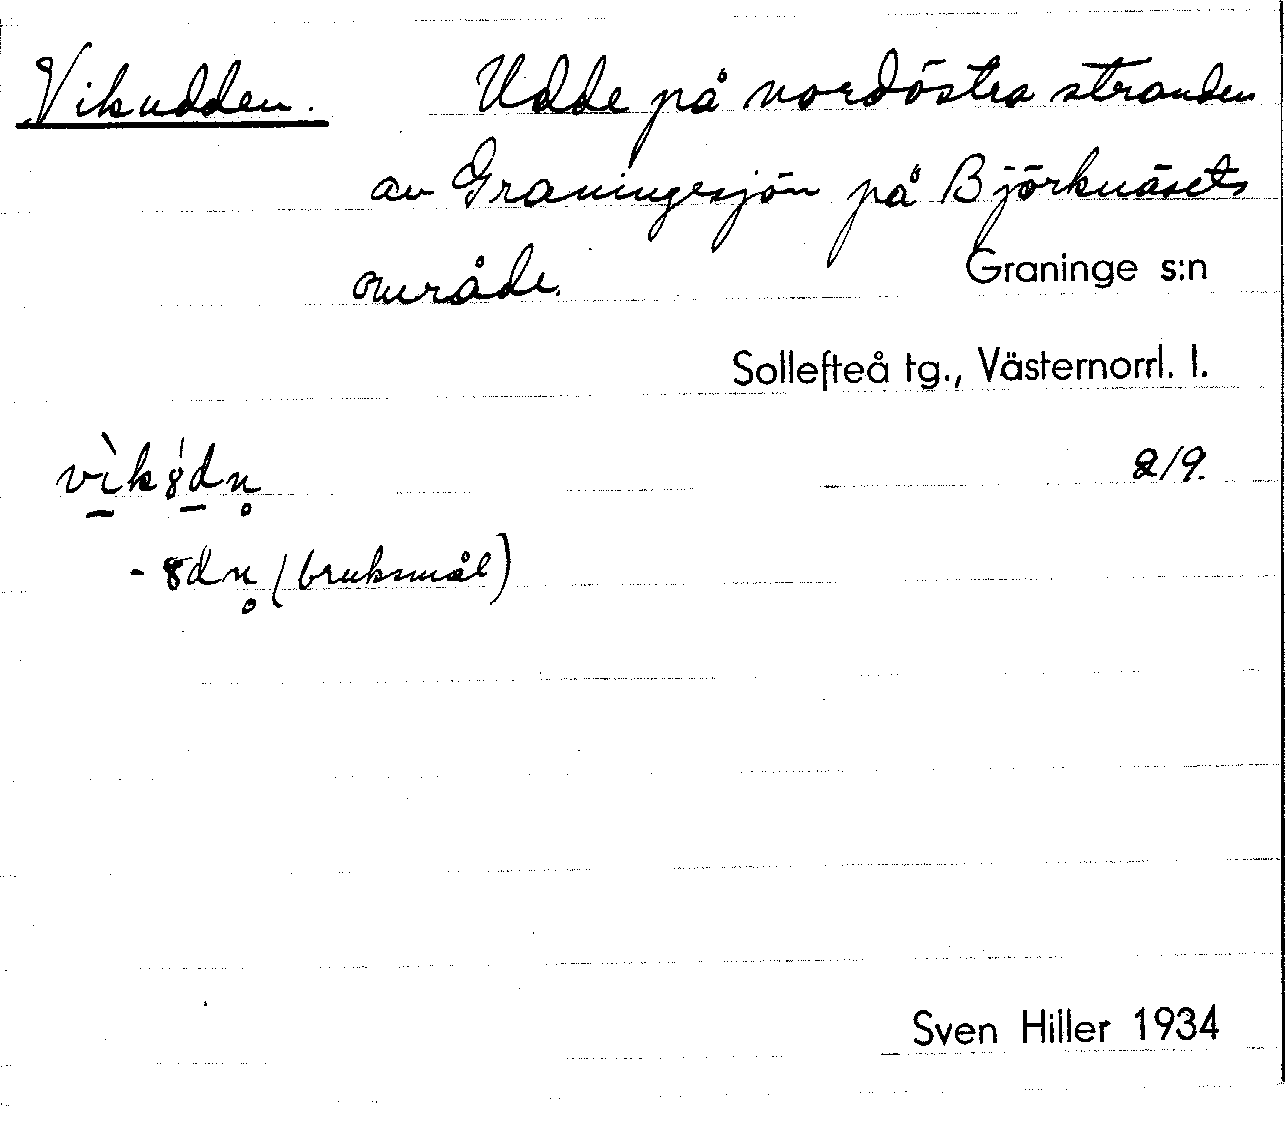 Vikudden. Udde på nordöstra stranden
av Graningesjön på Björknäsets
område.
Graninge s:n
Sollefteå tg., Västernorrl. l.
vìk8́dn̥ 2/9.
- 8dn̥ (bruksmål)
Sven Hiller 1934